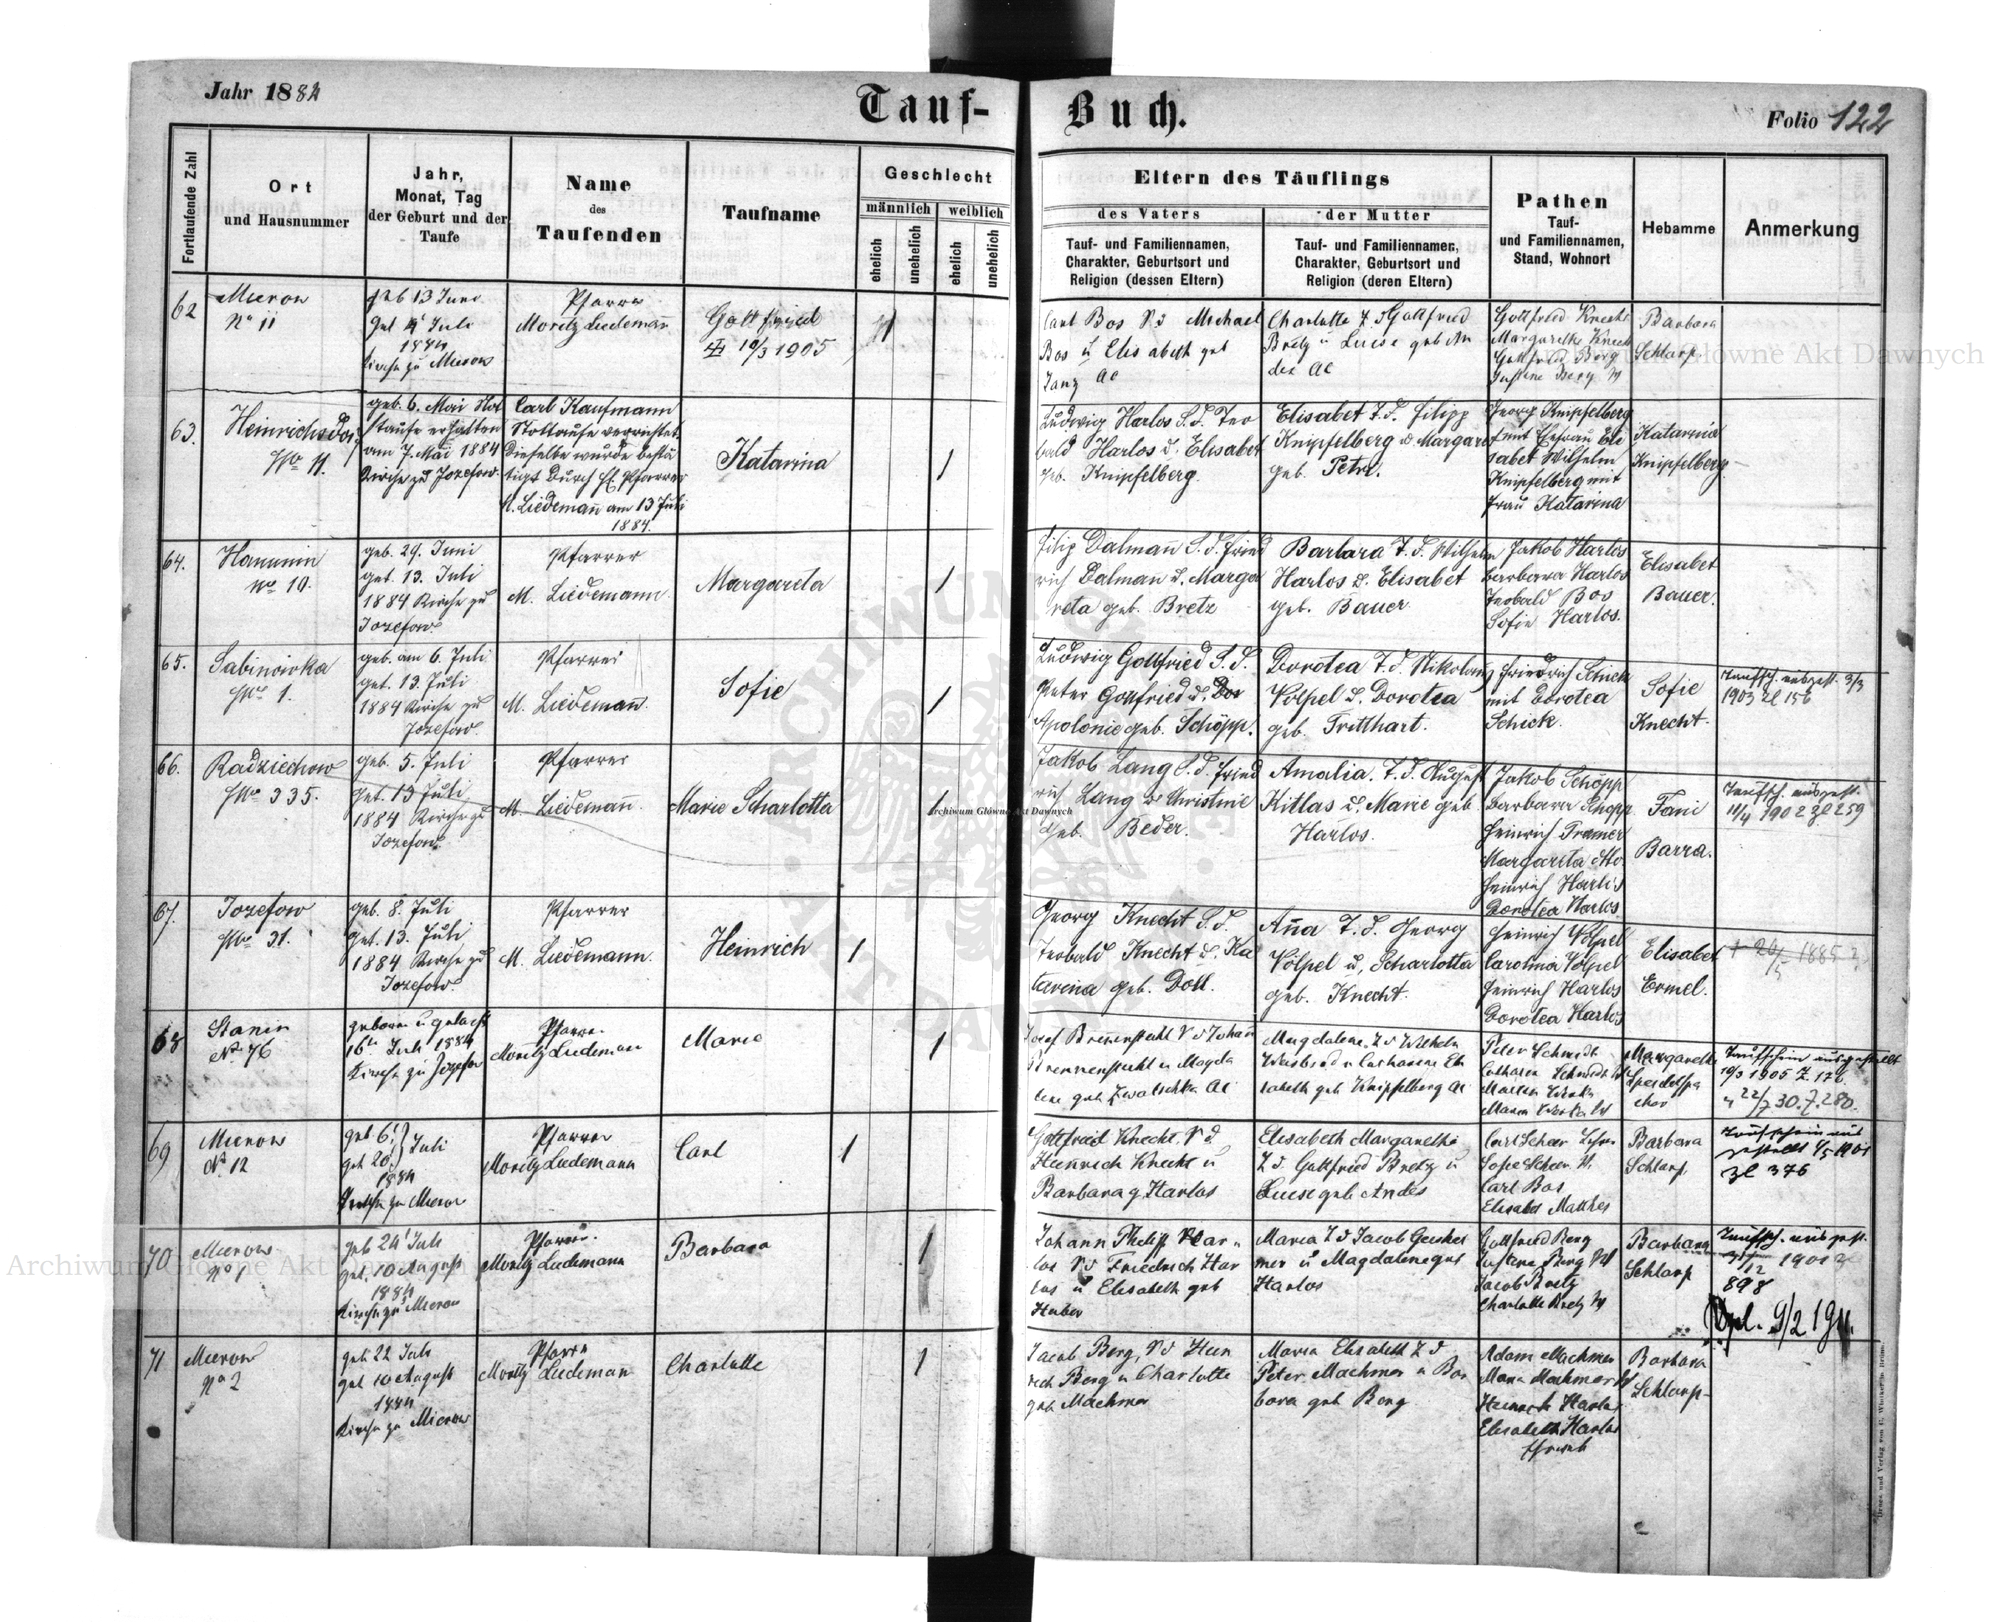 Jahr 1884
Tauf-
Buch.
Folio 122
Fortlaufende Zahl
Ort
und Hausnummer
Jahr,
Monat, Tag
der Geburt und der
Taufe
Name
des
Taufenden
Taufname
Geschlecht
männlich
weiblich
ehelich
unehelich
ehelich
unehelich
Eltern des Täuflings
des Vaters
der Mutter
Tauf- und Familiennamen,
Charakter, Geburtsort und
Religion (dessen Eltern)
Tauf- und Familiennamen,
Charakter, Geburtsort und
Religion (deren Eltern)
Pathen
Tauf-
und Familiennamen,
Stand, Wohnort
Hebamme
Anmerkung
62
Mierow
No 11
geb 13 Juni
get 4 Juli
1884
Kirche zu Mierow
Pfarrer
Moritz Liedemann
Gottfried
10/3 1905
Carl Bos S. d Michael
Bos u Elisabeth geb
Charlotte T d Gottfried
Bretz u Luise geb An
des AC
Gottfried Knecht
Margarethe Knecht
Gottfried Berg
Justine Berg
Barbara
Schlarp
63.
Heinrichsdorf
No 11.
geb. 6. Mai Not
staufe erhalten
am 7. Mai 1884
Kirche zu Jozefow.
Carl Kaufmann
Nottaufe verrichtet.
Dieselbe wurde bestä
tigt durch H. Pfarrer
M. Liedemañ am 13 Juli
1884.
Katarina
1
Ludwig Harlos S. d. Teo
bald Harlos u. Elisabet
geb. Knipfelberg.
Elisabet T. d. Filipp
Knipfelberg u Margaret
geb. Petri.
Georg Knipfelberg
mit Ehefrau Eli
sabet Wilhelm
Knipfelberg mit
Frau Katarina
Katarina
Knipfelberg
64.
Hanunin
No 10.
geb. 29. Juni
get. 13. Juli
1884 Kirche zu
Jozefow.
Pfarrer
M. Liedemann.
Margareta
1
Filip Dalmañ S. d. Fried
rich Dalman u. Marga
reta geb. Bretz
Barbara T. d. Wilhelm
Harlos u. Elisabet
geb. Bauer.
Jakob Harlos
Barbara Harlos
Teobald Bos
Sofie Harlos.
Elisabet
Bauer.
65.
Sabinowka
No 1.
geb. am 6. Juli
get. 13. Juli
1884 Kirche zu
Jozefow.
Pfarrer
M. Liedemañ.
Sofie
1
Ludwig Gottfried S. d.
Peter Gottfried u. Dor
Apolonie geb. Schöpp.
Dorotea T. d Nikolaus
Völpel u. Dorotea
geb. Tritthart.
Friedrich Schick
mit Dorotea
Schick.
Sofie
Knecht.
Taufsch. ausgest. 3/3
1903 Zl 156
66.
Radziechow
No 335.
geb. 5. Juli
get. 13 Juli
1884 Kirche zu
Jozefow.
Pfarrer
M. Liedemañ.
Marie Scharlotta
1
Jakob Lang S. d. Fried
rich Lang u Christine
geb. Beder.
Amalia. T. d. August
Kitlas u. Marie geb.
Harlos.
Jakob Schöpp
Barbara Schopp
Heinrich Kramer
Margareta
Heinrich Harlos
Dorotea Harlos
Fani
Barra.
Taufsch. ausgest.
11/4 1902 Zl 259
67.
Jozefow
No 31.
geb. 8. Juli
get. 13. Juli
1884 Kirche zu
Jozefow.
Pfarrer
M. Liedemann.
Heinrich
1
Georg Knecht S. d.
Teobald Knecht u. Ka
tarina geb. Doll.
Añа T. d. Georg
Völpel u, Scharlotta
geb. Knecht.
Heinrich Völpel
Carolina Völpel
Heinrich Harlos
Dorotea Harlos
Elisabet
Ermel.
† 20/5 1885
68
Stanin
No 76
geboren u getauft
16. Juli 1884
Kirche zu Jozefow
Pfarrer
Moritz Liedeman
Marie
1
Josef Brennenstuhl S d Johann
Brennenstuhl u Magda
lene geb Zwatschka AC
Magdalena T d Wilhelm
sabeth geb Knipfelberg AC
Peter Schmidt
Catharina Schmidt
Margarethe
Taufschein ausgestellt
10/3 1905 Z. 176.
" 22/7 30. Z. 280.
69
Mierow
No 12
geb 6.
get 20. Juli
1884
Kirche zu Mierow
Pfarrer
Moritz Liedemann
Carl
1
Gottfried Knecht, S d
Heinrich Knecht u
Barbara g Harlos
Elisabeth Margaretha
T d Gottfried Bretz u
Luise geb Andes
Sofie Scheer
Carl Bos
Elisabet Matthes
Barbara
Schlarp
Taufschein aus
gestellt 4/5 1901
Zl 376
70
Mierow
No 1
geb 24 Juli
get. 10 August
1884
Kirche zu Mierow
Pfarrer
Moritz Liedemann
Barbara
1
Johann Philipp Har
los S d Friedrich Har
los u Elisabeth geb
Huber
Maria T d Jacob
mer u Magdalene geb
Harlos
Gottfried Berg
Justine Berg
Jacob Bretz
Charlotte Bretz
Barbara
Schlarp
Taufsch. ausgest.
898
Dpl. 9/2 1911.
71
Mierow
No 2
geb 22 Juli
get 10 August
1884
Kirche zu Mierow
Pfarrer
Moritz Liedeman
Charlotte
1
Jacob Berg, S d Hein
rich Berg u Charlotte
geb Machmer
Maria Elisabeth T d
Peter Machmer u Bar
bara geb Berg
Adam Machmer
Maria Machmer
Heinrich Harlos
Elisabeth Harlos
Ehweib
Barbara
Schlarp
Druck und Verlag von C. Winiker in Brünn.
Archiwum Główne Akt Dawnych
Archiwum Główne Akt Dawnych
Archiwum Główne Akt Dawnych